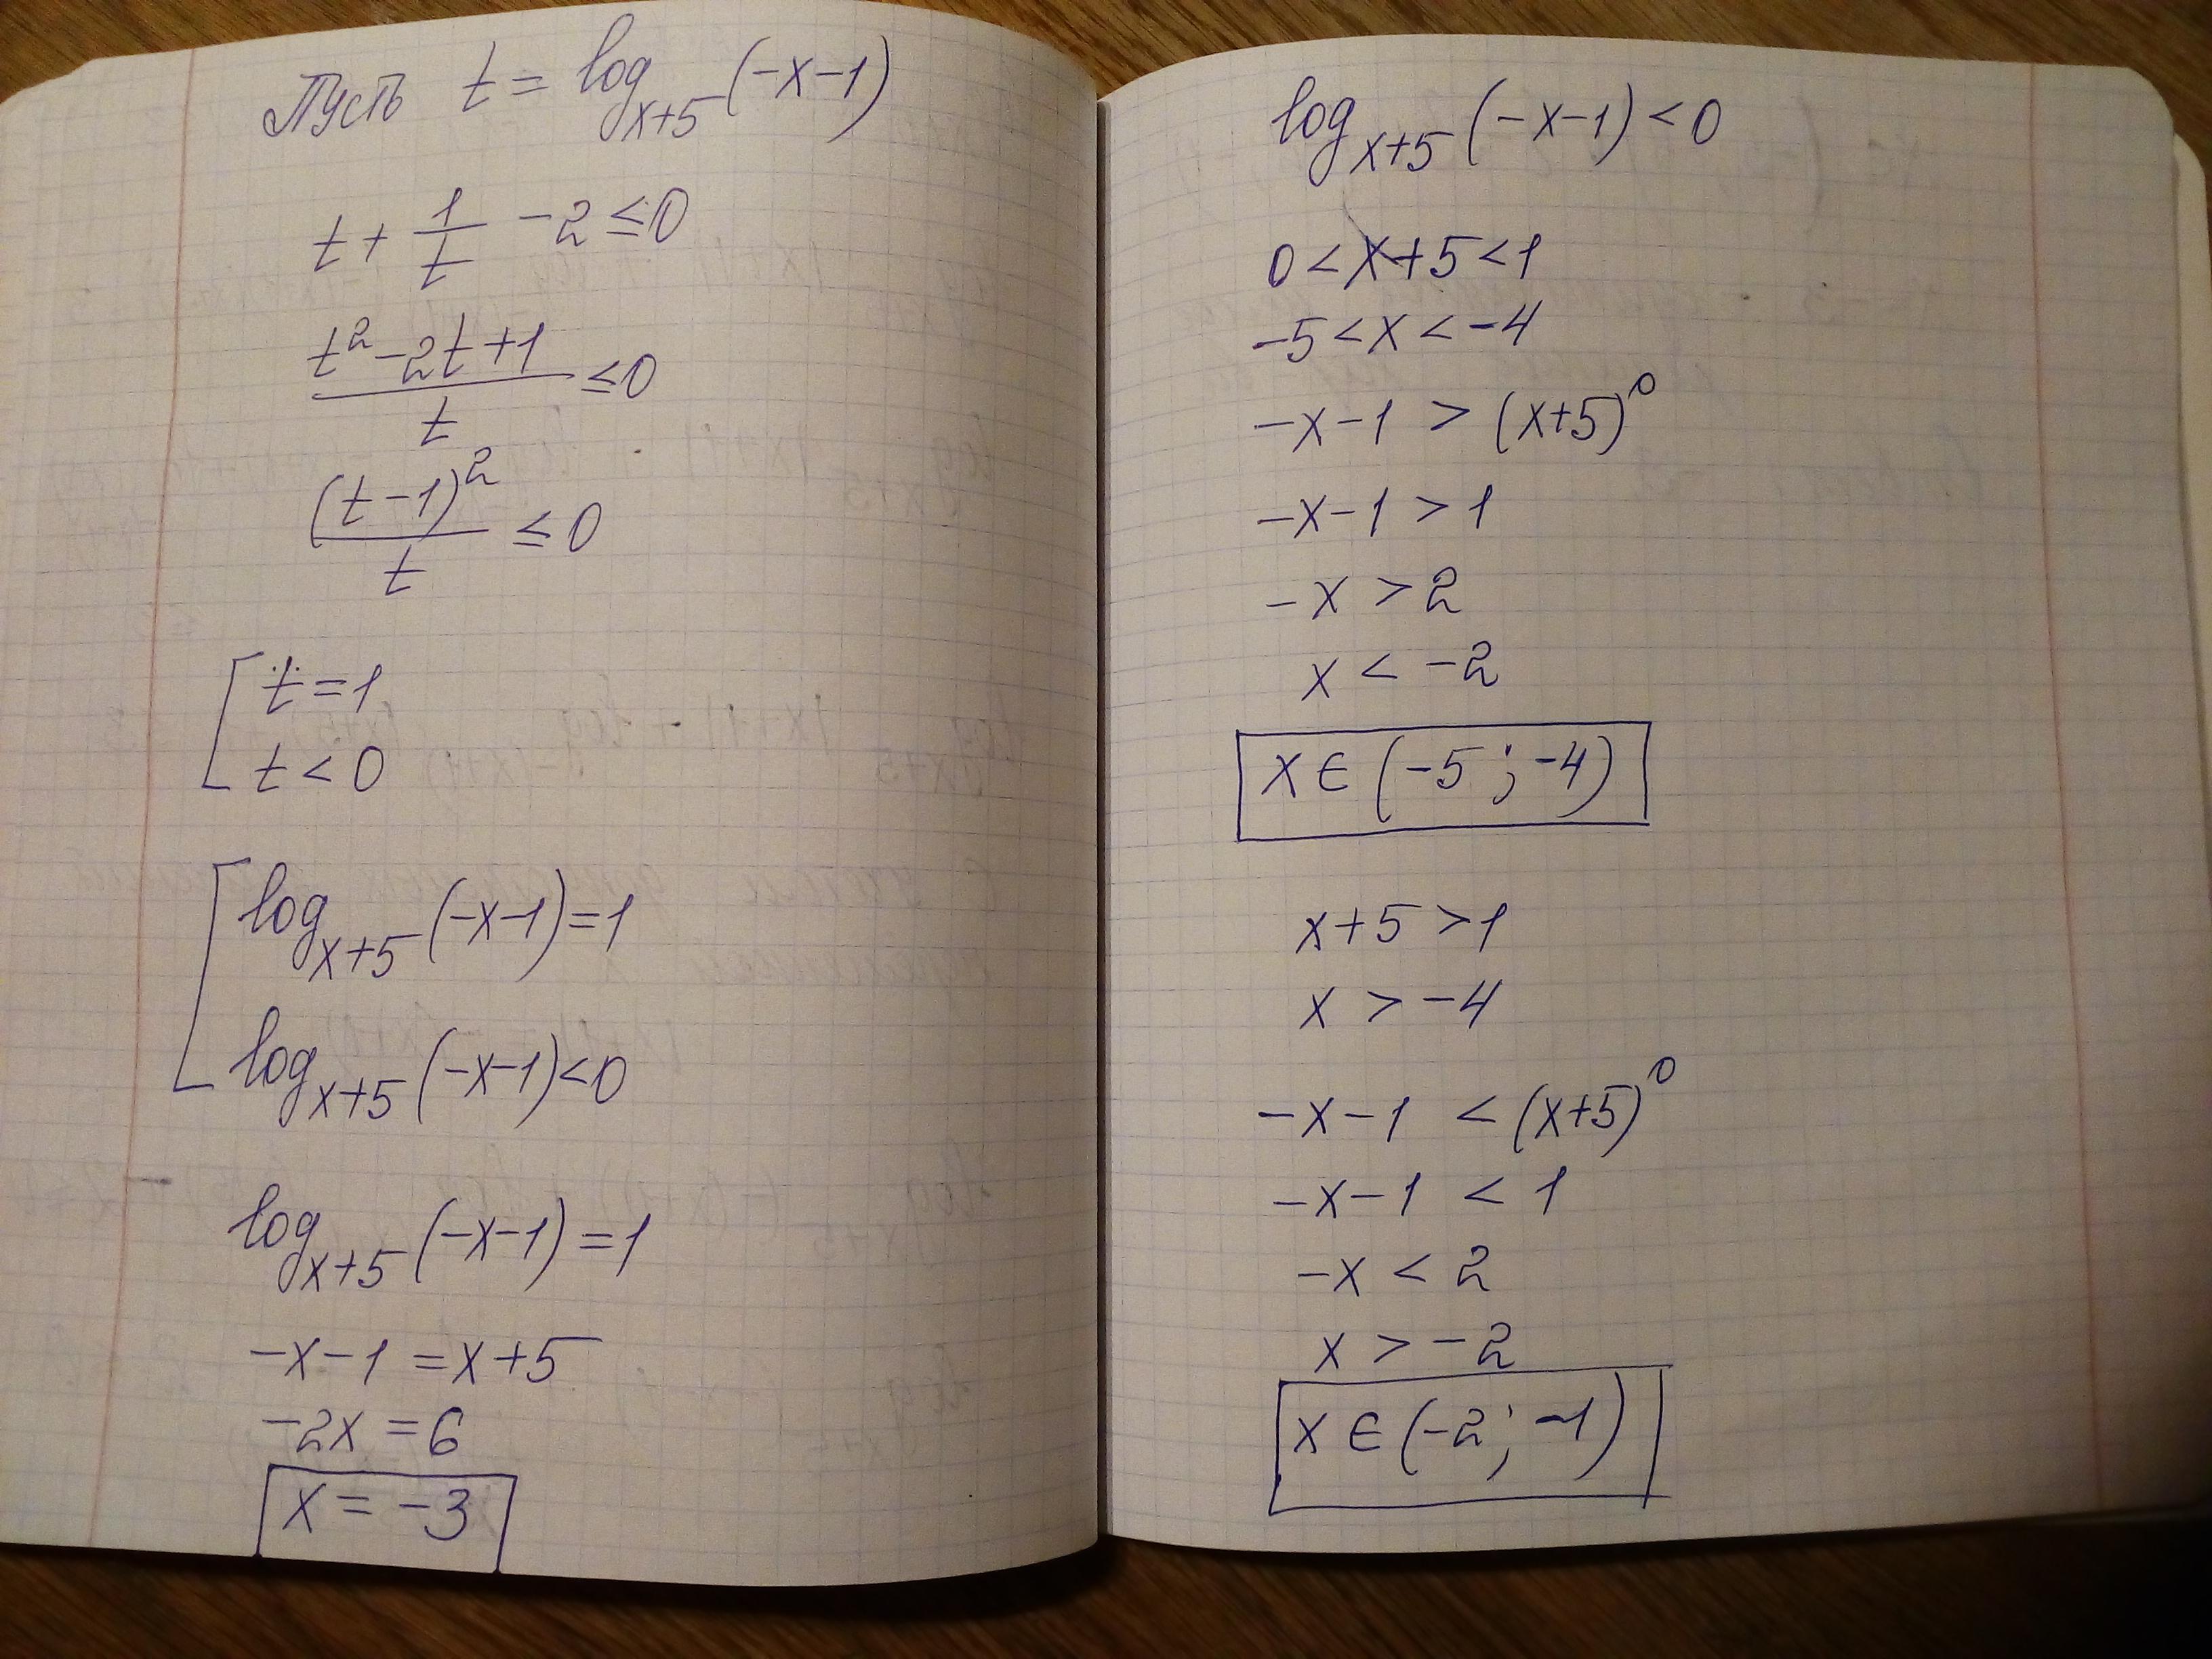 Пусть t = log_{x+5}(-x-1)
t + 1/t - 2 ≤ 0
(t² - 2t + 1)/t ≤ 0
(t-1)²/t ≤ 0
[ t = 1
t < 0
[ log_{x+5}(-x-1) = 1
log_{x+5}(-x-1) < 0
log_{x+5}(-x-1) = 1
-x-1 = x+5
-2x = 6
x = -3
log_{x+5}(-x-1) < 0
0 < x+5 < 1
-5 < x < -4
-x-1 > (x+5)⁰
-x-1 > 1
-x > 2
x < -2
x ∈ (-5; -4)
x+5 > 1
x > -4
-x-1 < (x+5)⁰
-x-1 < 1
-x < 2
x > -2
x ∈ (-2; -1)